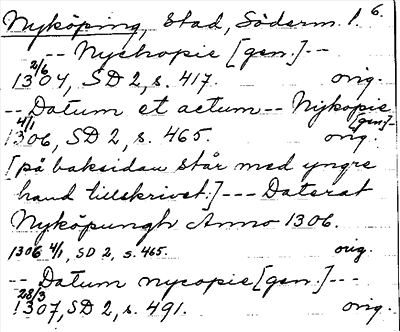 Nyköping, Stad, Söderm. l. 6.
-- Nychopie [gen.] --
2/6 1304, SD 2, s. 417. orig.
-- Datum et actum -- Nykopie [gen.] --
4/1 1306, SD 2, s. 465. orig.
[på baksidan står med yngre
hand tillskrivet:] --- Daterat
Nyköpungh Anno 1306.
1306 4/1, SD 2, s. 465. orig.
-- Datum nycopie [gen.] ---
28/3 1307, SD 2, s. 491. orig.